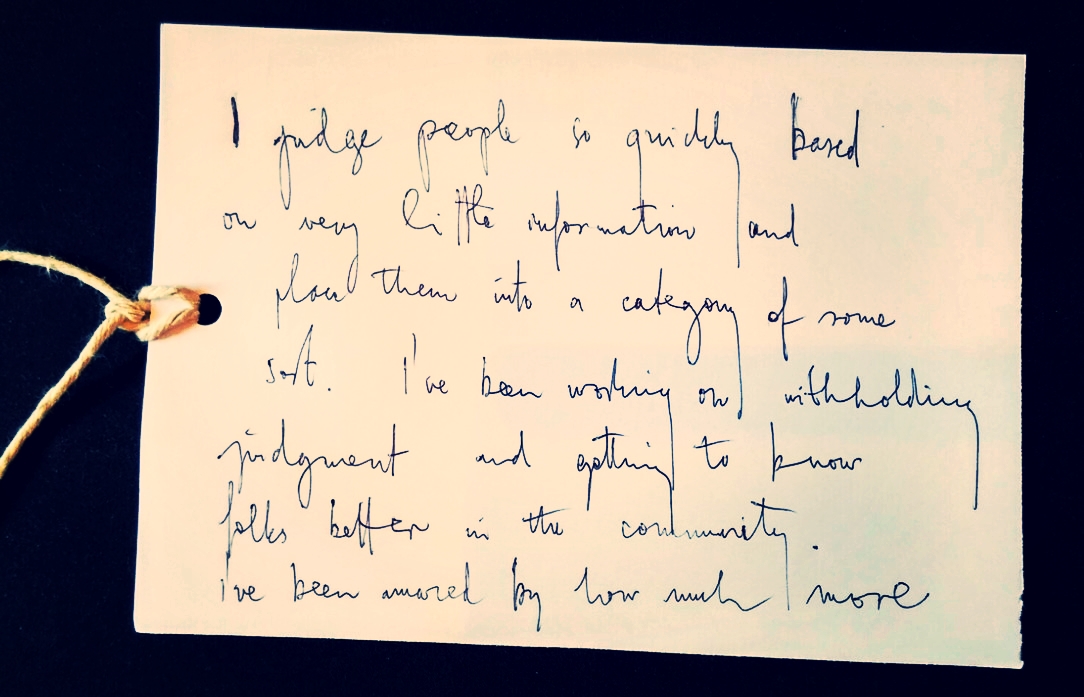 I judge people so quickly based
on very little information and
place them into a category of some
sort. I've been working on withholding
judgment and getting to know
folks better in the community.
I've been amazed by how much more